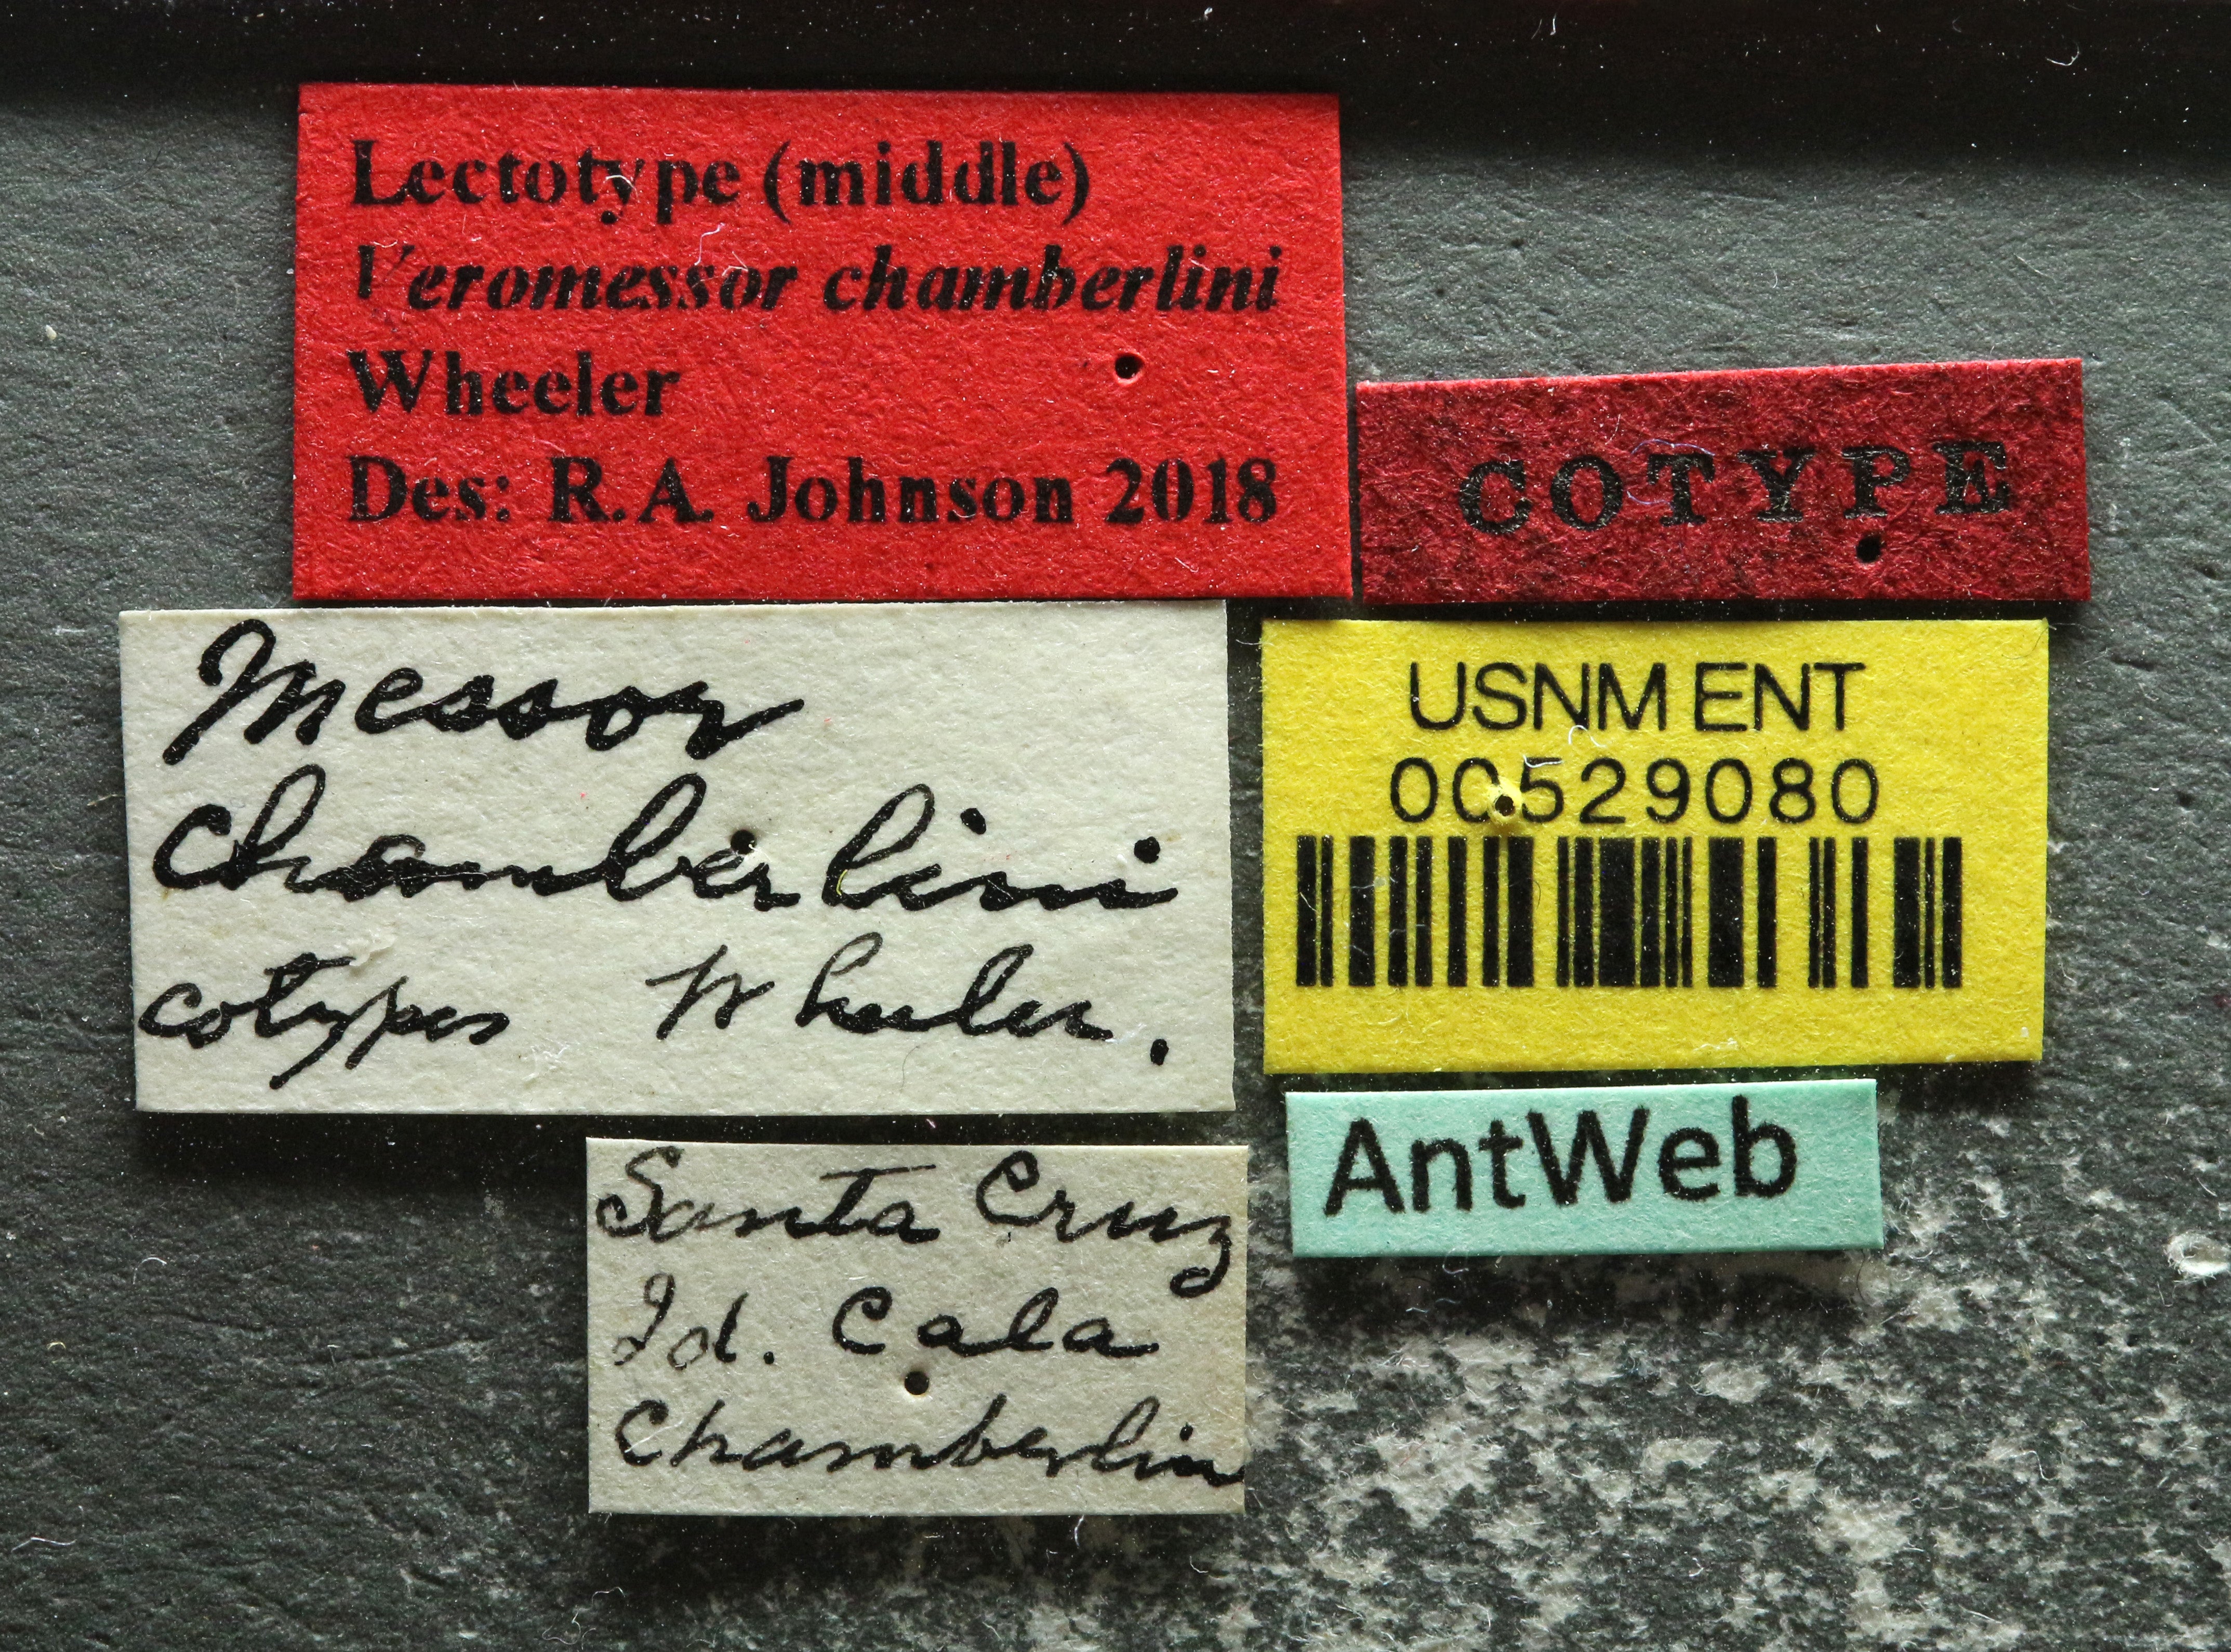 Lectotype (middle)
Veromessor chamberlini
Wheeler
Des: R.A. Johnson 2018
COTYPE
Messor
chamberlini
cotypes Wheeler.
USNM ENT
00529080
AntWeb
Santa Cruz
Id. Cala
Chamberlin